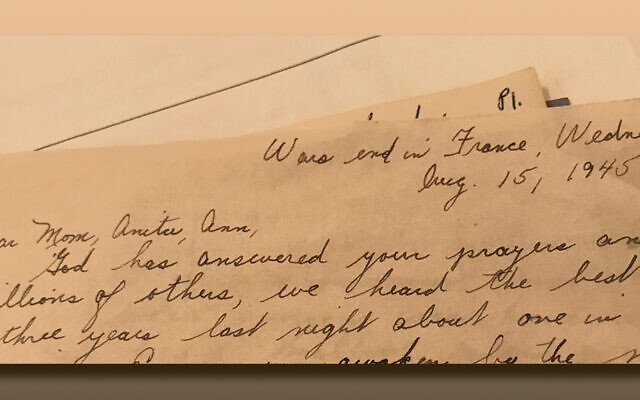 Pl.
Wars end in France, Wedn
Aug. 15, 1945
ar Mom, Anita, Ann,
God has answered your prayers an
illions of others, we heard the best
three years last night about one in
awaken by the